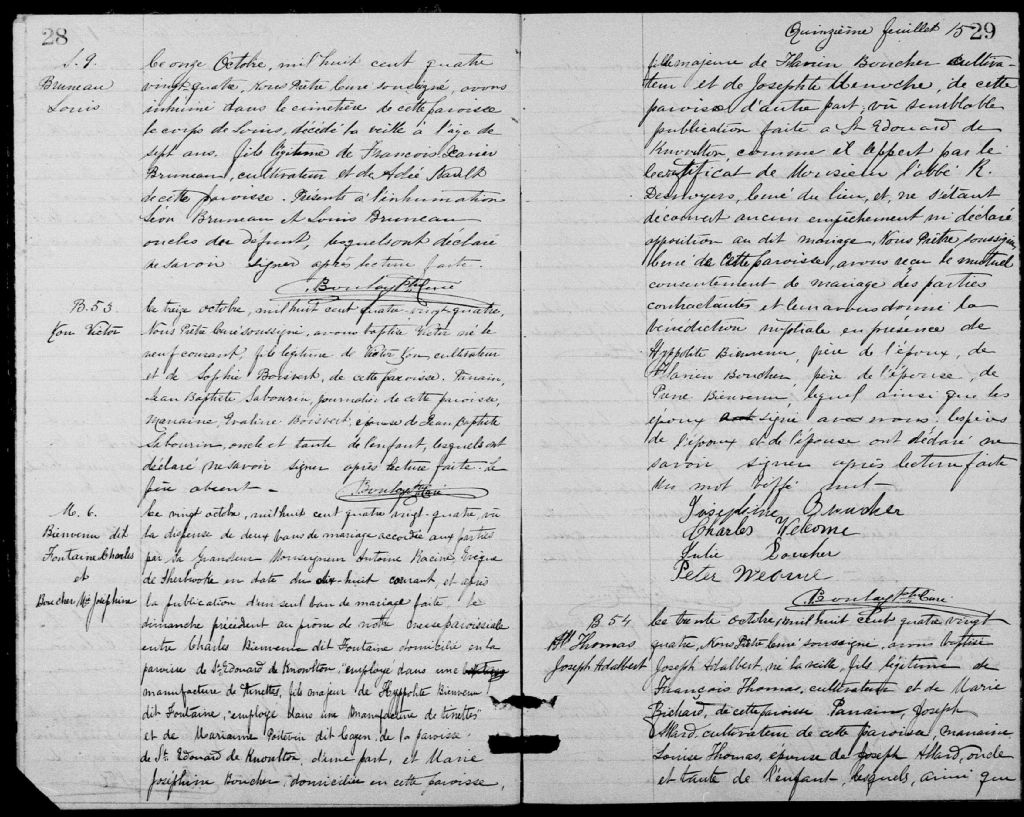 28
S. 9.
Bruneau
Louis
Le onze Octobre, mil huit cent quatre
vingt-quatre, Nous Prêtre Curé soussigné, avons
inhumé dans le cimetière de cette paroisse
le corps de Louis, décédé la veille à l'âge de
sept ans, fils légitime de François Xavier
Bruneau, cultivateur et de Adlé Nault
de cette paroisse. Présents à l'inhumation
Léon Bruneau et Louis Bruneau
oncles du défunt, lesquels ont déclaré
ne savoir signer après lecture faite.
Boulay Ptre Curé
B. 53.
Yon Victor
Le treize octobre, mil huit cent quatre-vingt-quatre,
Nous Prêtre Curé soussigné, avons baptisé Victor né le
neuf courant, fils légitime de Victor Yon, cultivateur
et de Sophie Boisvert, de cette paroisse. Parrain,
Jean Baptiste Sabourin, journalier de cette paroisse,
Marraine, Evaline Boisvert, épouse de Jean Baptiste
Sabourin, oncle et tante de l'enfant, lesquels ont
déclaré ne savoir signer après lecture faite. Le
père absent -
Boulay Ptre Curé
M. 6.
Bienvenu dit
Fontaine, Charles
et
Boucher, Mie Joséphine
Le vingt octobre, mil huit cent quatre vingt-quatre, vu
la dispense de deux bans de mariage accordée aux parties
par Sa Grandeur Monseigneur Antoine Racine, Evêque
de Sherbrooke en date du dix-huit courant, et après
la publication d'un seul ban de mariage faite, le
dimanche précédent au prône de notre messe paroissiale
entre Charles Bienvenu dit Fontaine domicilié en la
paroisse de St Edouard de Knowlton, employé dans une
manufacture de tinettes, fils majeur de Hyppolite Bienvenu
dit Fontaine, "employé dans une Manufacture de tinettes"
et de Marianne Poitevin dit Cagen, de la paroisse
de St Edouard de Knowlton, d'une part, et Marie
Joséphine Boucher, domiciliée en cette paroisse,
Quinzième feuillet 15 29
fille majeure de Flavien Boucher cultiva-
teur et de Josephte Meroche, de cette
paroisse d'autre part; vu semblable
publication faite à St Edouard de
Knowlton, comme il appert par le
certificat de Monsieur l'abbé R.
Desnoyers, Curé du lieu, et, ne s'étant
découvert aucun empêchement ni déclaré
opposition au dit mariage, Nous Prêtre soussigné,
Curé de cette paroisse, avons reçu le mutuel
consentement de mariage des parties
contractantes et leur avons donné la
bénédiction nuptiale en présence de
Hyppolite Bienvenu, père de l'époux, de
Flavien Boucher, père de l'épouse, de
Pierre Bienvenu lequel ainsi que les
époux ont signé avec nous; les pères
de l'époux et de l'épouse ont déclaré ne
savoir signer après lecture faite
Un mot biffé nul
Josephine Boucher
Charles Welcome
Julie Boucher
Peter Welcome
Boulay Ptre Curé
B. 54
Thomas
Joseph Adalbert
Le trente octobre, mil huit cent quatre vingt
quatre, Nous Prêtre Curé soussigné, avons baptisé
Joseph Adalbert, né la veille, fils légitime de
François Thomas, cultivateur et de Marie
Bichard, de cette paroisse. Parrain, Joseph
Allard, cultivateur de cette paroisse, marraine
Louise Thomas, épouse de Joseph Allard, oncle
et tante de l'enfant, lesquels, ainsi que